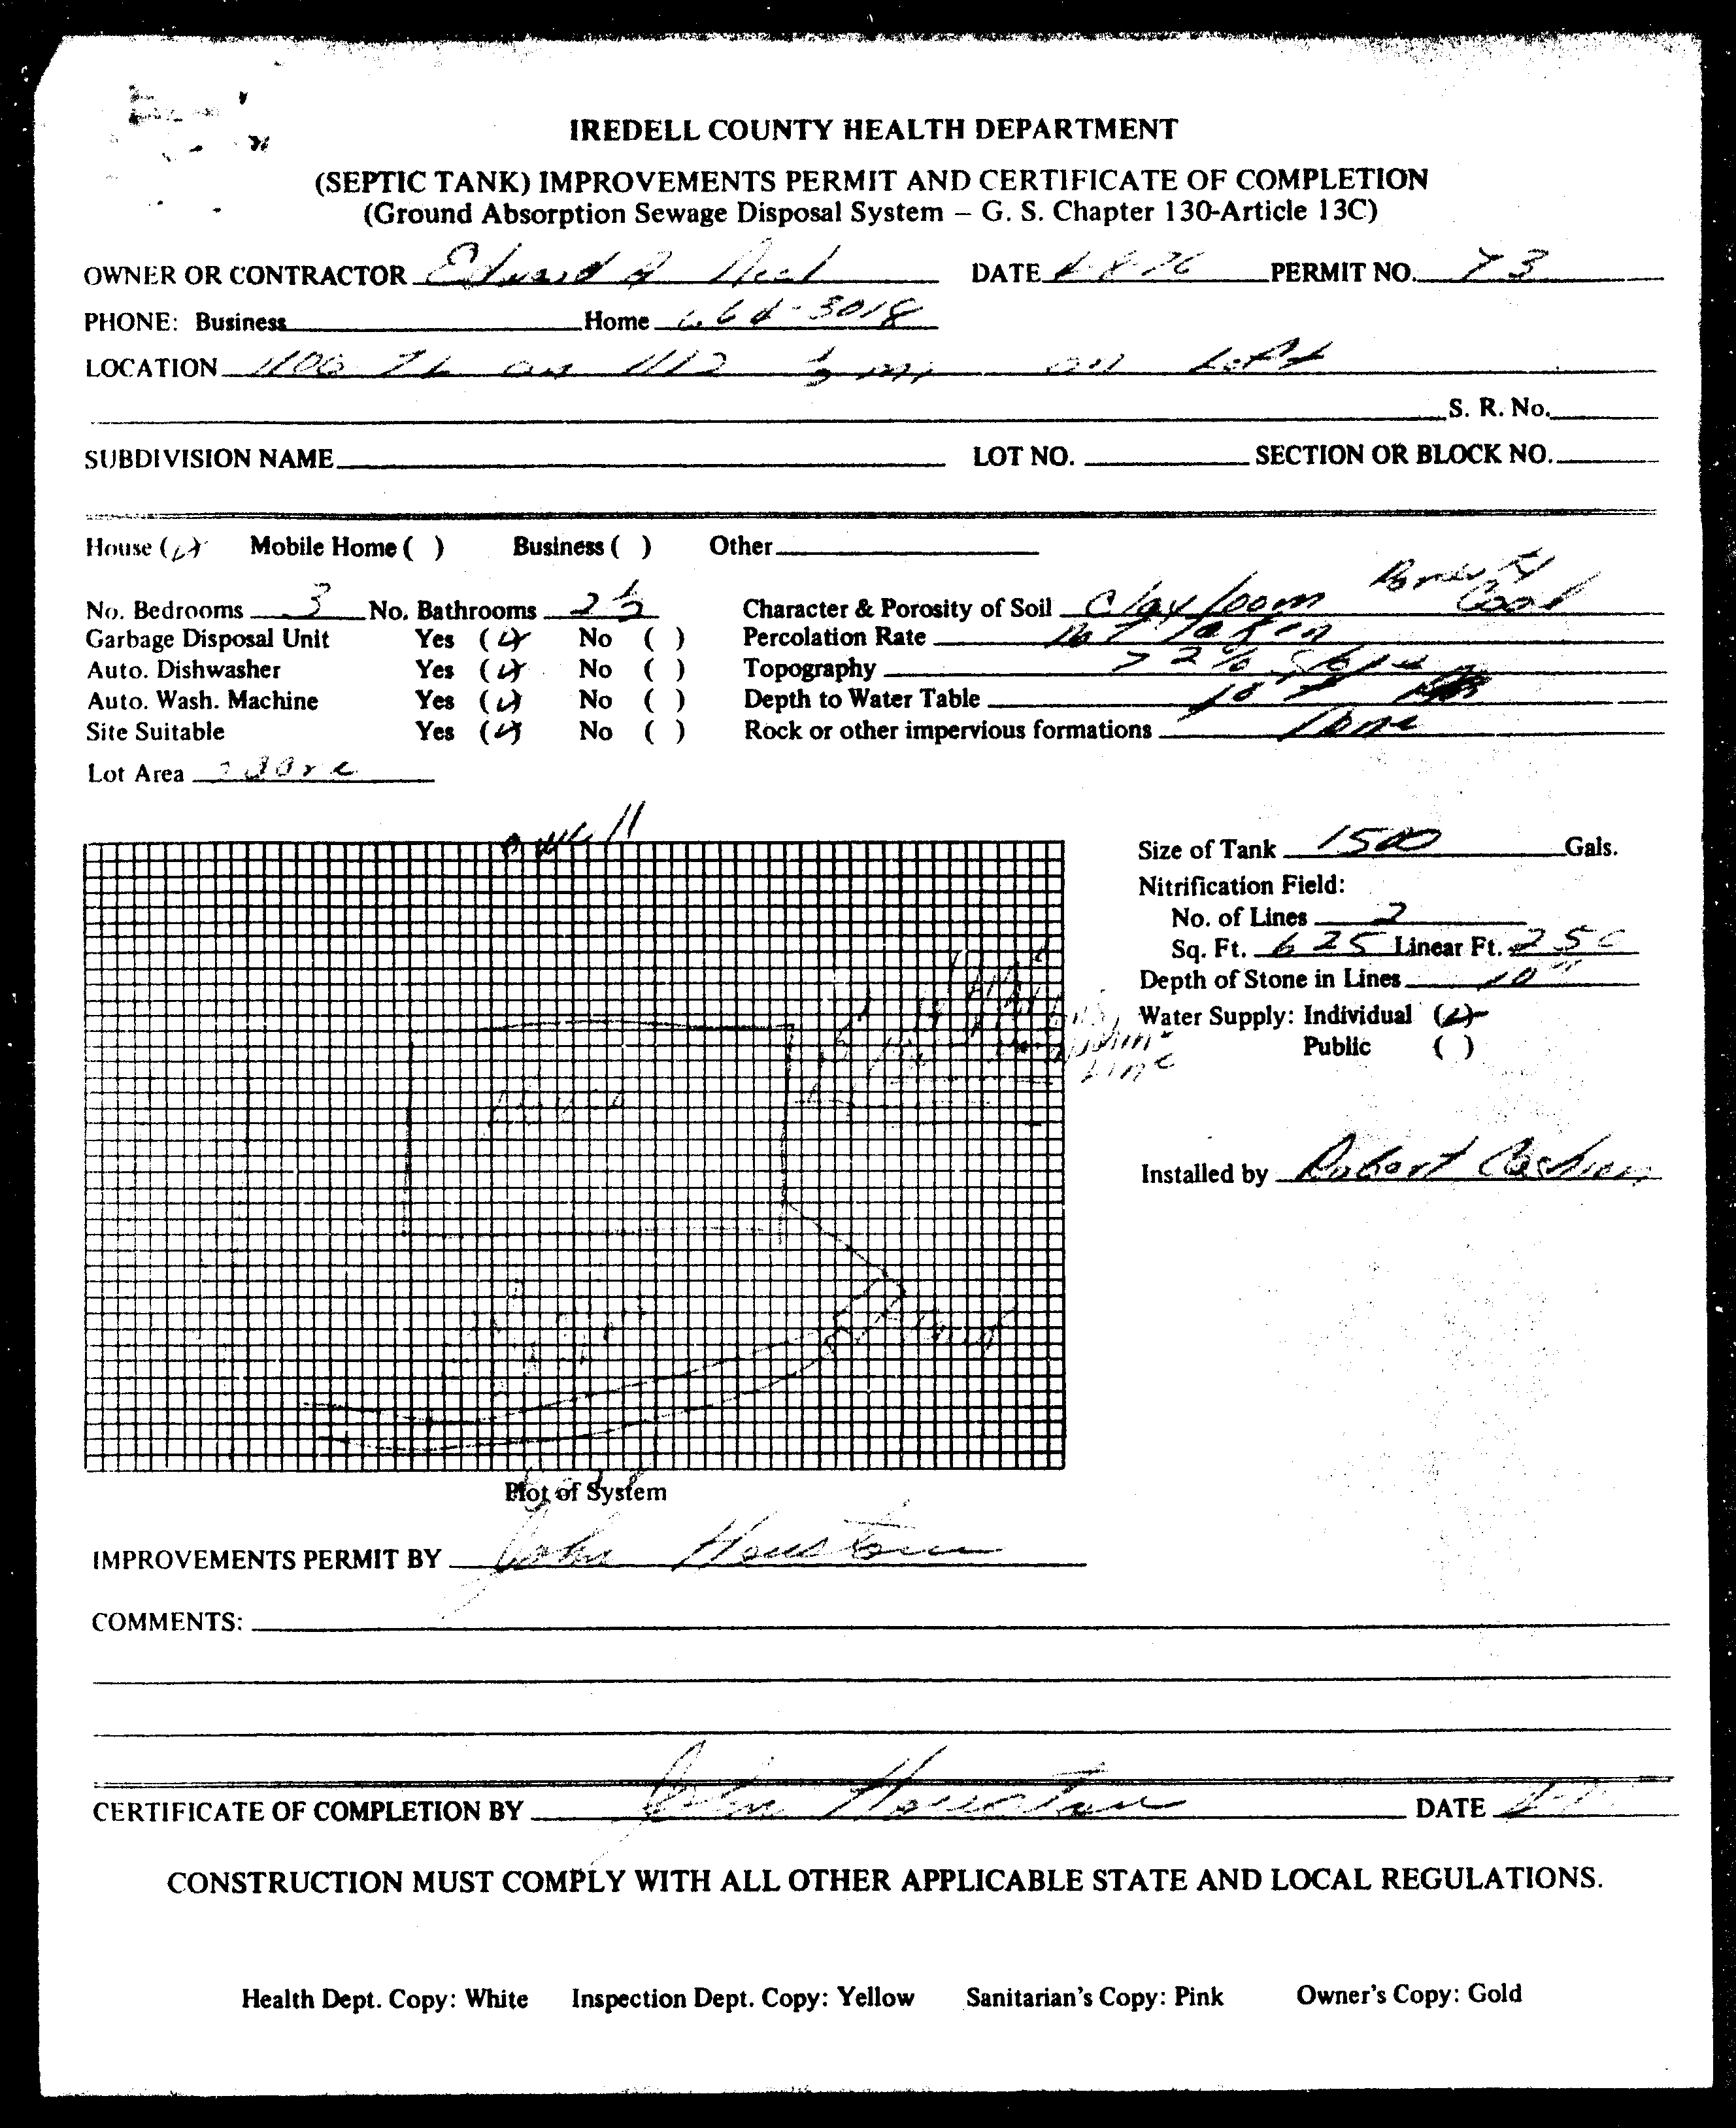 IREDELL COUNTY HEALTH DEPARTMENT
(SEPTIC TANK) IMPROVEMENTS PERMIT AND CERTIFICATE OF COMPLETION
(Ground Absorption Sewage Disposal System – G. S. Chapter 130-Article 13C)
OWNER OR CONTRACTOR Edward DATE PERMIT NO. 73
PHONE: Business Home 664-3018
LOCATION 1100 TL on 1112 ½ mi on Left
S. R. No.
SUBDIVISION NAME LOT NO. SECTION OR BLOCK NO.
House (✓) Mobile Home ( ) Business ( ) Other
No. Bedrooms 3 No. Bathrooms 2½ Character & Porosity of Soil Clay loam Porosity Good
Garbage Disposal Unit Yes (✓) No ( ) Percolation Rate Not Taken
Auto. Dishwasher Yes (✓) No ( ) Topography > 2% Slope
Auto. Wash. Machine Yes (✓) No ( ) Depth to Water Table 10'+
Site Suitable Yes (✓) No ( ) Rock or other impervious formations None
Lot Area
well
Size of Tank 1500 Gals.
Nitrification Field:
No. of Lines 2
Sq. Ft. 625 Linear Ft. 250
Depth of Stone in Lines 10"
Water Supply: Individual (✓)
Public ( )
Line
House
Installed by Robert
Plot of System
IMPROVEMENTS PERMIT BY John Houston
COMMENTS:
CERTIFICATE OF COMPLETION BY John Houston DATE
CONSTRUCTION MUST COMPLY WITH ALL OTHER APPLICABLE STATE AND LOCAL REGULATIONS.
Health Dept. Copy: White Inspection Dept. Copy: Yellow Sanitarian's Copy: Pink Owner's Copy: Gold